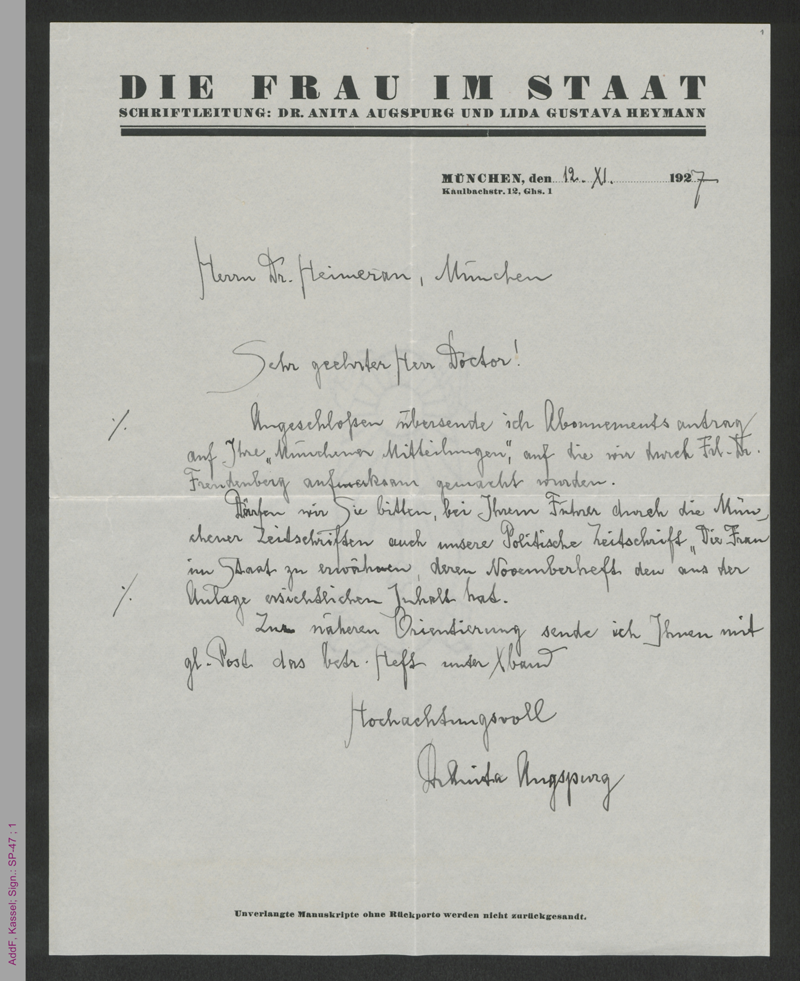 DIE FRAU IM STAAT
SCHRIFTLEITUNG: DR. ANITA AUGSPURG UND LIDA GUSTAVA HEYMANN
MÜNCHEN, den 12. XI. 1927
Kaulbachstr. 12, Ghs. 1
Herrn Dr. Heimeran, München
Sehr geehrter Herr Doctor!
Angeschloßen übersende ich Abonnementsantrag
auf Ihre „Münchener Mitteilungen", auf die wir durch Frl. Dr.
Freudenberg aufmerksam gemacht wurden.
Dürfen wir Sie bitten, bei Ihrem Führer durch die Mün-
chener Zeitschriften auch unsere Politische Zeitschrift „Die Frau
im Staat zu erwähnen, deren Novemberheft den aus der
Anlage ersichtlichen Inhalt hat.
Zur näheren Orientierung sende ich Ihnen mit
gl. Post das betr. Heft unter Xband
Hochachtungsvoll
Dr Anita Augspurg
Unverlangte Manuskripte ohne Rückporto werden nicht zurückgesandt.
AddF, Kassel; Sign.: SP-47 ; 1